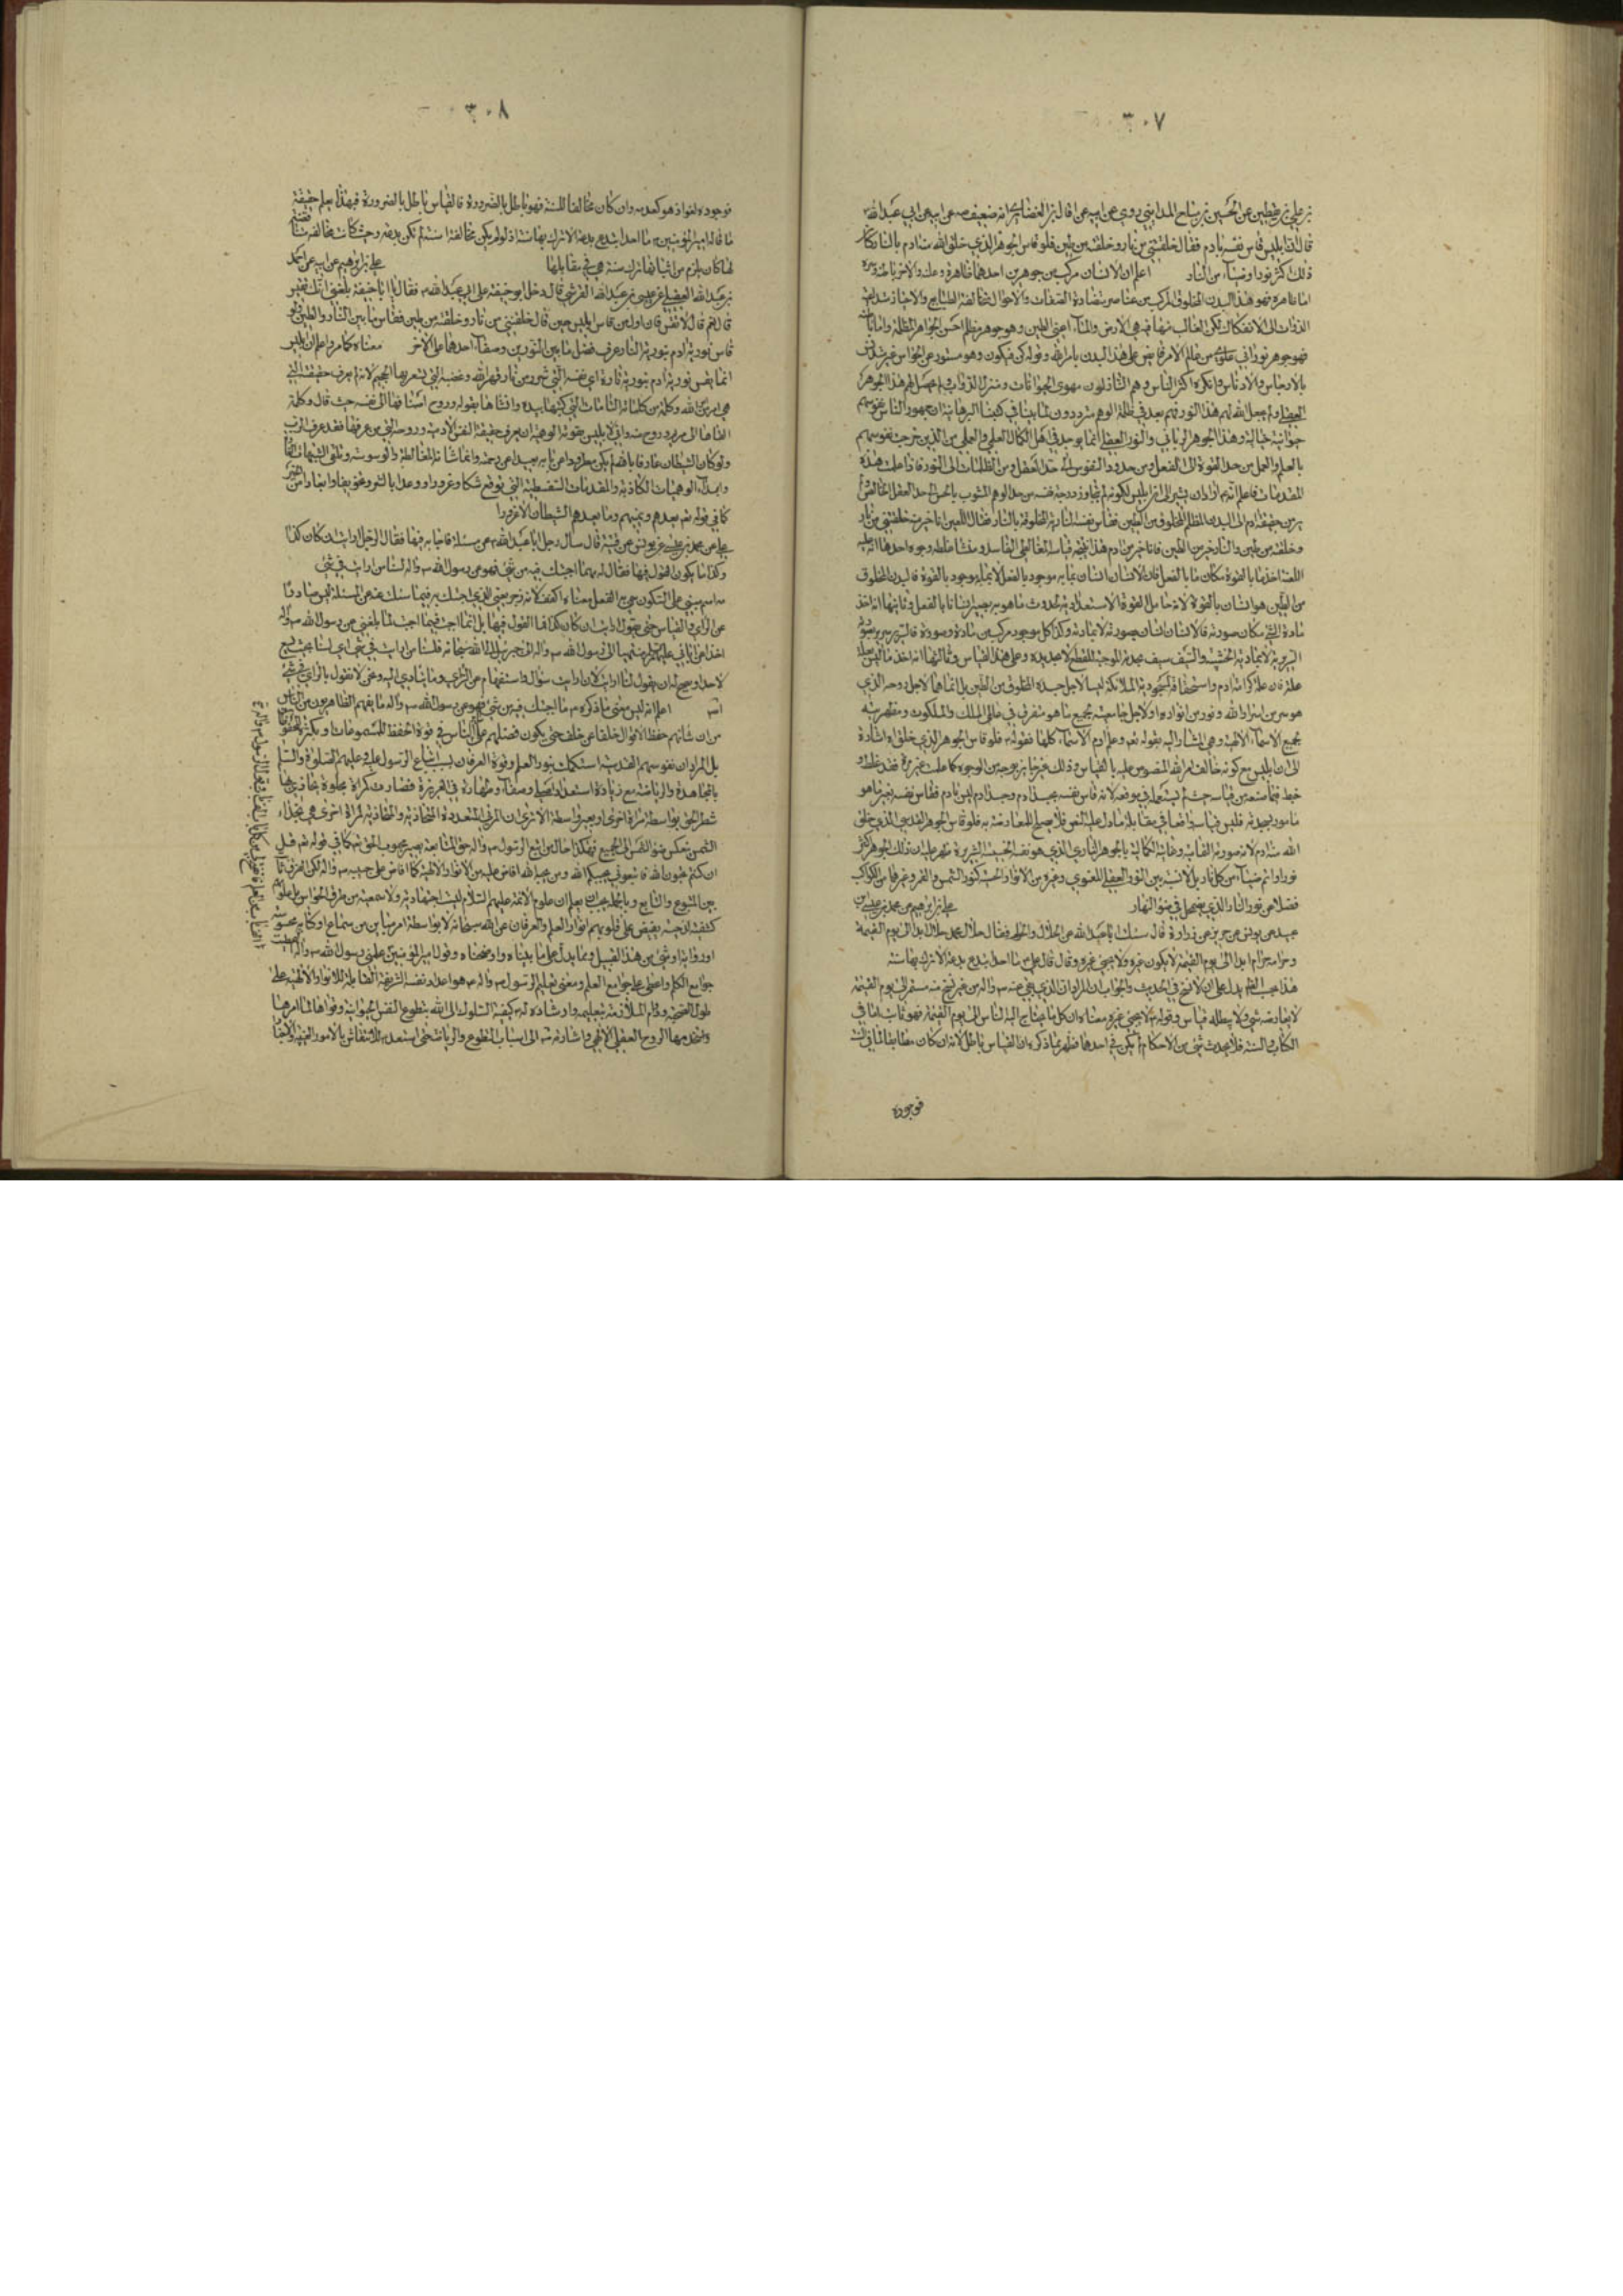 ٣٠٧
بن علي بن يقطين عن الحسين بن مياح المدايني روى عن ابيه عن قال بن الغضايري انه ضعيف صه عن ابيه عن ابي عبدالله ع
قال ان ابليس قاس نفسه بادم فقال خلقتني من نار وخلقته من طين فلو قاس الجوهر الذي خلق الله منه ادم بالنار كان
ذلك اكثر نورا وضياء من النار اعلم ان الانسان مركب من جوهرين احدهما ظاهره وعلنه والاخر باطنه وسره
اما ظاهره فهو هذا البدن المخلوق المركب من عناصر متضادة الصفات والاحوال متخالفة الطبايع والاحياز
الى الانفكاك لكن الغالب منها فيه هي الارض والماء اعني الطين وهو جوهر مظلم اخس الجواهر المظلمة واما باطنه
فهو جوهر نوراني علوي من عالم الامر فايض على هذا البدن بامر الله وقوله كن فيكون وهو مستور عن الحواس
بالارجاس والادناس وانكره اكثر الناس وهم النازلون مهوى الحيوانات ومنزل الدواب ولم يحصل لهم هذا الجوهر
العقلي ولم يجعل الله لهم هذا النور فهم بعد في ظلمة الوهم مترددون لما بينا في كتبنا البرهانية ان جمهور الناس نفوسهم
حيوانية خيالية وهذا الجوهر الرباني والنور العقلي انما يوجد في اهل الكمال العلمي والعملي من الذين خرجت نفوسهم
بالعلم والعمل من حد القوة الى الفعل ومن حدود النفوس الى حد العقل ومن الظلمات الى النور فاذا علمت هذه
المقدمات فاعلم انه ع اراد ان يشير الى ان ابليس لكونه لم يتجاوز درجة نفسه من حد الوهم المشوب بالحس الى حد العقل الخالص لم
ير من حقيقة ادم الا البدن المظلم المخلوق من الطين فقاس نفسه النارية المخلوقة بالنار فقال اللعين انا خير منه خلقتني من نار
وخلقته من طين والنار خير من الطين فانا خير من ادم هذا قياسه المغالطي الفاسد ومنشا غلطه وجوه احدها انه عليه
اللعنة اخذ ما بالقوة مكان ما بالفعل فان الانسان انسان بما به موجود بالفعل لا بما به موجود بالقوة فالبدن المخلوق
من الطين هو انسان بالقوة لانه حامل القوة الاستعدادية لحدوث ما هو به يصير انسانا بالفعل وثانيها انه اخذ
مادة الشيء مكان صورته فالانسان انسان بصورته لا بمادته وكذا كل موجود مركب من مادة وصورة فالسرير سرير بصورته
السريرية لا بمادته الخشبية والسيف سيف بحدته الموجبة للقطع لا بحديده وعلى هذا القياس وثالثها انه اخذ ما ليس بعلة
علة فان علة كرامة ادم واستحقاقه لمسجودية الملائكة ليست لاجل جسده المخلوق من الطين بل انما هي لاجل روحه الذي
هو سر من اسرار الله ونور من انواره او لاجل جامعيته لجميع ما هو متفرق في عالمي الملك والملكوت ومظهريته
لجميع الاسماء الالهية وهي المشار اليه بقوله تعالى وعلم ادم الاسماء كلها فقوله ع فلو قاس الجوهر الذي خلق اه اشارة
الى ان ابليس مع كونه خالف امر الله المنصوص عليه بالقياس وذلك غير جايز بوجه من الوجوه كما علمت غير مرة فقد غلط و
خبط فيما استعمله من قياسه حيث لم يستعمله في موضعه لانه قاس نفسه بجسد ادم وجسد ادم ليس بادم فقاس نفسه بغير ما هو
مامور بسجدته فليس قياسه واقعا في مقابلة ما دل عليه النص فلا يصلح للمعارضة به فلو قاس الجوهر القدسي الذي خلق
الله منه ادم لانه صورته التمامية وغايته الكمالية بالجوهر الناري الذي هو نفسه الخبيثة الشريرة لظهر عليه ان ذلك الجوهر اكثر
نورا واتم ضياء من كل نار بل لا نسبة بين النور العقلي المعنوي وغيره من الانوار الحسية كنور الشمس والقمر وغيرهما من الكواكب
فضلا عن نور النار الذي يضمحل في ضوء النهار علي بن ابراهيم عن محمد بن عيسى بن
عبيد عن يونس عن حريز عن زرارة قال سئلت ابا عبدالله عن الحلال والحرام فقال حلال محمد حلال ابدا الى يوم القيمة
وحرامه حرام ابدا الى يوم القيمة لا يكون غيره ولا يجيئ غيره وقال قال علي ع ما احد ابتدع بدعة الا ترك بها سنة
هذا بحسب الظاهر يدل على ان لا نسخ في الحديث والجواب ان المراد ان الذي بقي عنه ص واله من غير نسخ منه مستمر الى يوم القيمة
لا يعارضه شيء ولا يبطله قياس وقوله ع لا يجيئ غيره معناه ان كل ما يحتاج اليه الناس الى يوم القيمة فهو ثابت اما في
الكتاب والسنة فلا يحدث شيء من الاحكام لم يكن في احدهما فظهر بما ذكره ان القياس باطل لانه ان كان مطابقا لما في السنة
فوجوده
٣٠٨
فوجوده لغو اذ هو كعدمه وان كان مخالفا للسنة فهو باطل بالضرورة فالقياس باطل بالضرورة فبهذا يعلم حقيقة
ما قاله امير المؤمنين ع ما احد ابتدع بدعة الا ترك بها سنة اذ لو لم يكن مخالفة لسنة لم تكن بدعة وحيث كانت مخالفة لسنة
لها كان يلزم من اثباتها ترك سنة هي في مقابلها علي بن ابراهيم عن ابيه عن احمد
بن عبدالله العقيلي عن عيسى بن عبدالله القرشي قال دخل ابو حنيفة على ابي عبدالله ع فقال له يا ابا حنيفة بلغني انك تقيس
قال نعم قال لا تقس فان اول من قاس ابليس حين قال خلقتني من نار وخلقته من طين فقاس ما بين النار والطين ولو
قاس نورية ادم بنورية النار عرف فضل ما بين النورين وصفاء احدهما على الاخر معناه كما مر واعلم ان ابليس
انما يقس نورية ادم بنورية ناره اي نفسه التي هي من نار قهر الله وغضبه التي تسعر بها الجحيم لانه لم يعرف حقيقته التي
هي امر من الله وكلمة من كلماته التامات التي كتبها بيده وانشاها بقوله وروح اضافها الى نفسه حيث قال وكلمة
القاها الى مريم وروح منه وانى لابليس بقوته الوهمية ان يعرف حقيقة النفس الادمية وروحه التي من عرفها فقد عرف الرب
ولو كان الشيطان عارفا بالله لم يكن مطرودا عن بابه بعيدا عن رحمته وانما شانه المغالطة والوسوسة وتلقى الشبهات
وابداء الوهميات الكاذبة والمقدمات السفسطية التي توقع شكا وغرورا ووعدا بالشر وتخويفا وايعادا من الخير
كما في قوله تعالى يعدهم ويمنيهم وما يعدهم الشيطان الا غرورا
علي عن محمد بن عيسى عن يونس عن قتيبة قال سأل رجل ابا عبدالله ع عن مسئلة فاجابه فيها فقال الرجل ارايت ان كان كذا
وكذا ما يكون القول فيها فقال له مه ما اجبتك فيه من شيء فهو عن رسول الله ص واله لسنا من ارايت في شيء
مه اسم مبني على السكون سمي به الفعل معناه اكفف لانه زجر يعني الذي اجبتك به فيما سئلت عنه من المسئلة ليس صادرا
عن الراي والقياس حتى يقول ارايت ان كان كذا فما القول فيها بل انما اجبت فيما اجبت لما بلغني من رسول الله ص واله
اخذا عن ابائي عليهم السلام منتهيا الى رسول الله ص واله الى جبرئيل الى الله سبحانه فلسنا من ارايت في شيء اي لسنا بحيث يسع
لاحد ويصح له ان يقول لنا ارايت لان ارايت سؤال واستفهام عن الراي وما يتادى اليه ونحن لا نقول بالراي في شيء
اعلم انه ليس معنى ما ذكره ع ما اجبتك فيه من شيء فهو عن رسول الله ص واله ما يفهم الظاهريون من الناس
من ان شانهم حفظ الاقوال خلفا عن خلف حتى يكون فضلهم على الناس في قوة الحفظ للمسموعات وبكثرة المحفوظات
بل المراد ان نفوسهم القدسية استكملت بنور العلم وقوة العرفان بسبب اتباع الرسول عليه وعليهم الصلوة والسلام
بالمجاهدة والرياضة مع زيادة استعداد اصلي وصفاء وطهارة في الغريزة فصارت كمراة مجلوة يحاذى بها
شطر الحق بواسطة مراة اخرى او بغير واسطة الا ترى ان المرائي المتعددة المتحاذية والمحاذية لمراة اخرى هي بحذاء
الشمس ينعكس ضوء الشمس الى الجميع فهكذا حال من اتبع الرسول ص واله حق المتابعة يصير محبوب الحق تعالى كما في قوله تعالى قل
ان كنتم تحبون الله فاتبعوني يحببكم الله ومن يحبه الله افاض عليه من الانوار الالهية كما افاض على حبيبه ص واله لكن الفرق ثابت
بين المتبوع والتابع وبالجملة يجب ان يعلم ان علوم الائمة عليهم السلام ليست اجتهادية ولا سمعية من طرق الحواس بل علومهم
كشفية لدنية يفيض على قلوبهم انوار العلم والعرفان من الله سبحانه لا بواسطة امر مباين من سماع او كتابة محسوسة
او رواية او شيء من هذا القبيل ومما يدل على ما بيناه واوضحناه قول امير المؤمنين ع علمني رسول الله ص واله
جوامع الكلم واعطى علي جوامع العلم ومعنى تعليم الرسول ص واله هو اعداد نفسه الشريفة القابلة للانوار الالهية على
طول الصحبة ودوام الملازمة بتعليمه وارشاده له كيفية السلوك الى الله بتطويع النفس الحيوانية وقواها لما امرها
واستخدمها الروح العقلي الالهي واشارته له الى اسباب التطويع والرياضة حتى استعد للانتقاش بالامور الغيبية